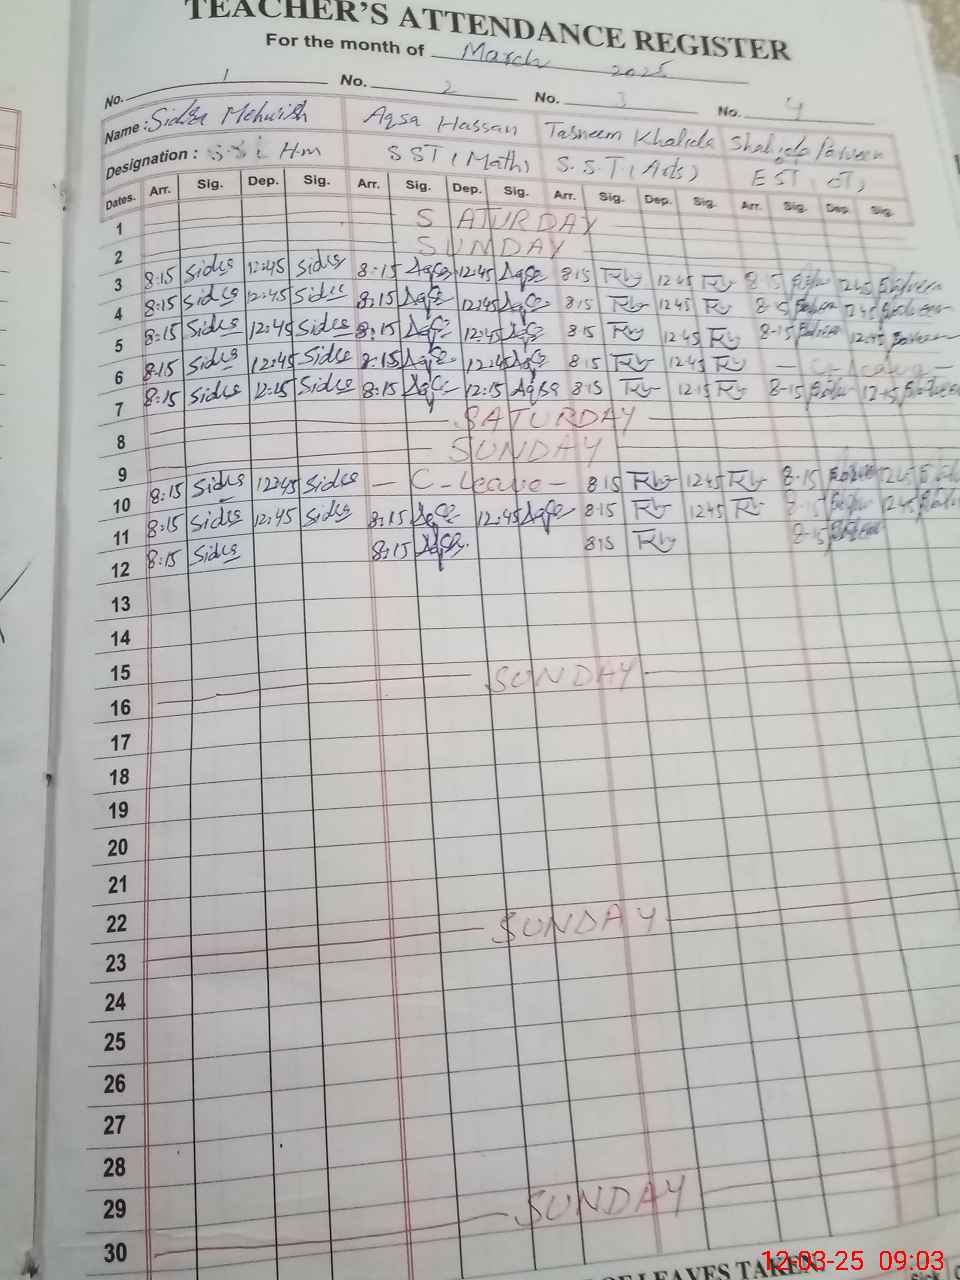 TEACHER'S ATTENDANCE REGISTER
For the month of March 2025
No. 1 No. 2 No. 3 No. 4
Name : Sidra Mehwish Aqsa Hassan Tasneem Khalida Shahida Parveen
Designation : H.m S S T (Math) S.S.T. (Arts) E S T
Dates. Arr. Sig. Dep. Sig. Arr. Sig. Dep. Sig. Arr. Sig. Dep. Sig. Arr. Sig. Dep. Sig.
1 SATURDAY
2 SUNDAY
3 8:15 Sidra 12:45 Sidra 8:15 Aqsa 12:45 Aqsa 8:15 12:45 8:15 12:45
4 8:15 Sidra 12:45 Sidra 8:15 Aqsa 12:45 Aqsa 8:15 12:45 8:15 12:45
5 8:15 Sidra 12:45 Sidra 8:15 Aqsa 12:45 Aqsa 8:15 12:45 8:15 12:45
6 8:15 Sidra 12:45 Sidra 8:15 Aqsa 12:45 Aqsa 8:15 12:45 C-Leave
7 8:15 Sidra 12:15 Sidra 8:15 Aqsa 12:15 Aqsa 8:15 12:15 8:15 12:15
8 SATURDAY
9 SUNDAY
10 8:15 Sidra 12:45 Sidra C-Leave 8:15 12:45 8:15 12:45
11 8:15 Sidra 12:45 Sidra 8:15 Aqsa 12:45 Aqsa 8:15 12:45 8:15 12:45
12 8:15 Sidra 8:15 Aqsa 8:15 8:15
13
14
15
16 SUNDAY
17
18
19
20
21
22
23 SUNDAY
24
25
26
27
28
29
30 SUNDAY
OF LEAVES TAKEN
12-03-25 09:03